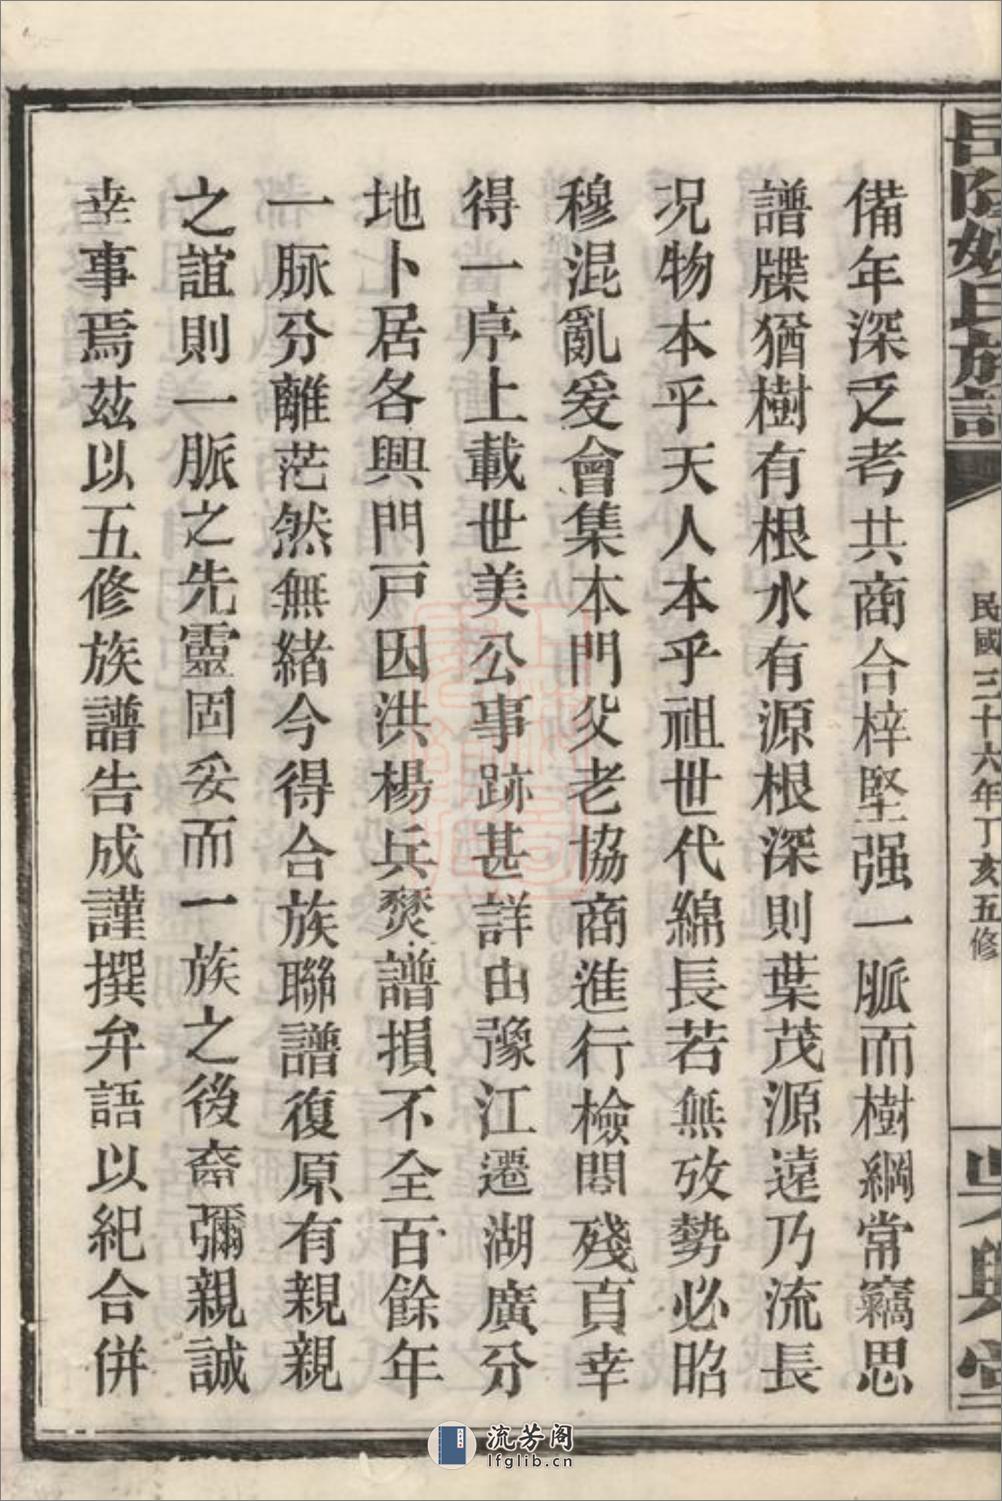 岳陽姚氏族譜
民國三十六年丁亥五修
吳興堂
備年深乏考共商合梓堅强一脈而樹綱常竊思
譜牒猶樹有根水有源根深則葉茂源遠乃流長
况物本乎天人本乎祖世代綿長若無攷勢必昭
穆混亂爰會集本門父老協商進行檢閱殘頁幸
得一序上載世美公事跡甚詳由豫江遷湖廣分
地卜居各興門戸因洪楊兵燹譜損不全百餘年
一脉分離茫然無緒今得合族聯譜復原有親親
之誼則一脈之先靈固妥而一族之後裔彌親誠
幸事焉茲以五修族譜告成謹撰弁語以紀合併
流芳阁
lfglib.cn